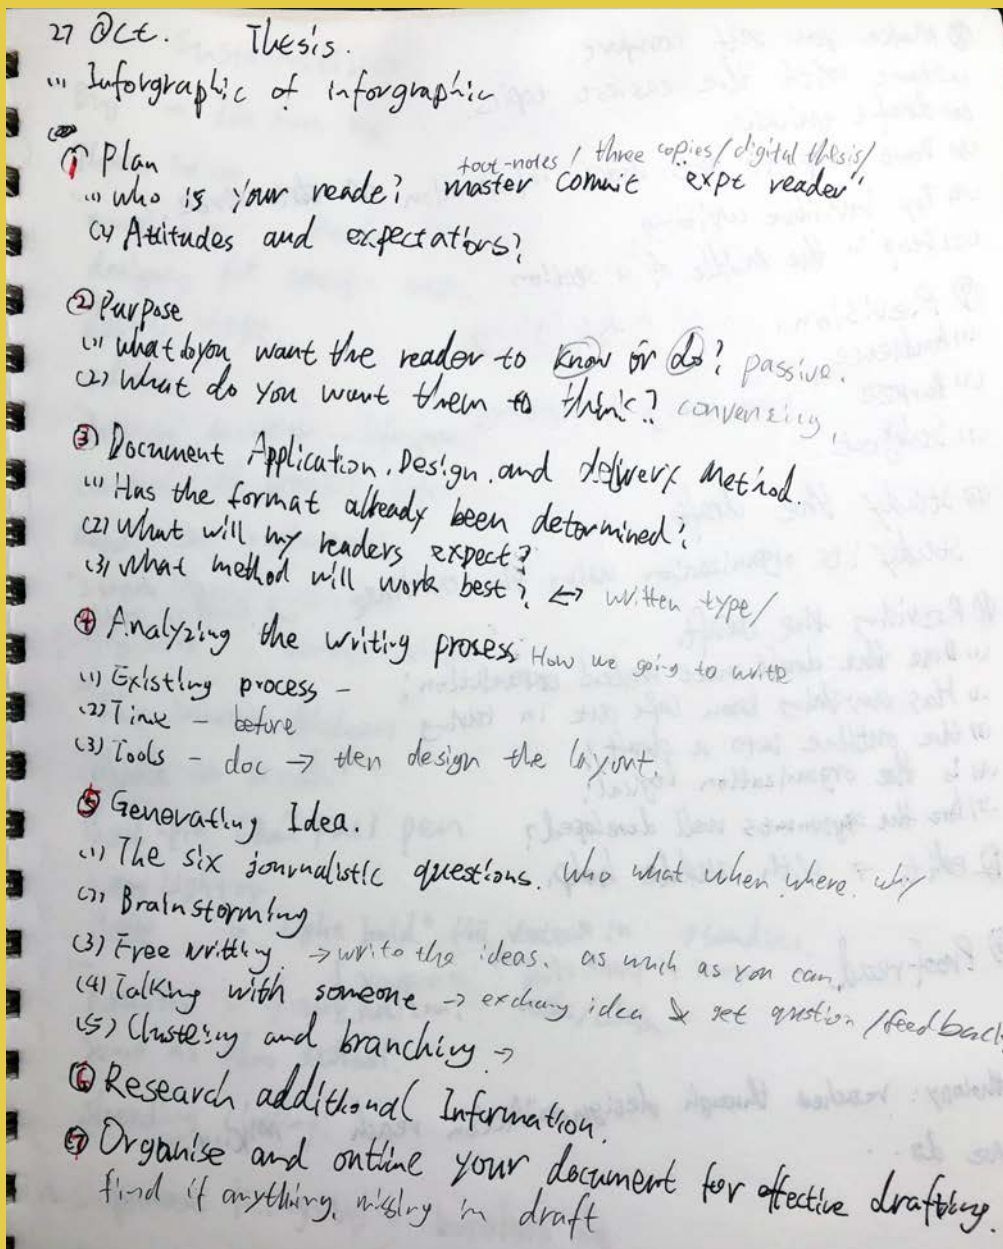 27 Oct. Thesis.
(1) Inforgraphic of inforgraphic
① Plan
foot-notes / three copies / digital thesis/
(1) who is your reade? master commit expt reader.
(2) Attitudes and expectations?
② Purpose
(1) what do you want the reader to know or do? passive.
(2) What do you want them to think? convencing.
③ Document Application, Design, and delivery Method.
(1) Has the format already been determined?
(2) What will my readers expect?
(3) What method will work best? ↔ written type/
④ Analyzing the writing prosess How we going to write
(1) Existing process -
(2) Time - before
(3) Tools - doc → then design the layout.
⑤ Generating Idea.
(1) The six journalistic questions. Who what when where why
(2) Brainstorming
(3) Free writting → write the ideas. as much as you can
(4) Talking with someone → exchang idea & get qustion / feedback
(5) Clustering and branching →
⑥ Research additional Information.
⑦ Organise and outline your document for effective drafting.
find if anything missing in draft